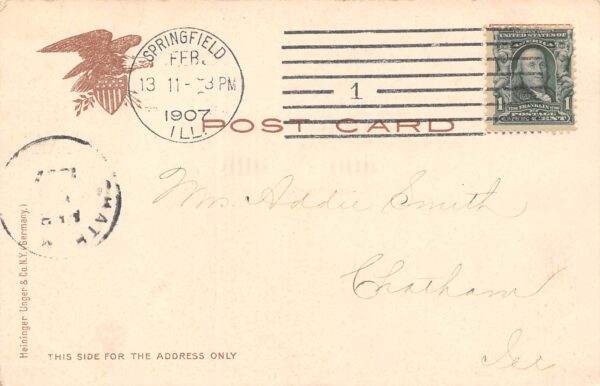 SPRINGFIELD
FEB
13 11-
PM
1907
ILL.
1
UNITED STATES OF
AMERICA
1 FRANKLIN 1
POSTAGE
ONE CENT
POST CARD
CHATH
Mrs. Addie Smith
Chatham
Ill
Heininger Unger & Co. N.Y. (Germany.)
THIS SIDE FOR THE ADDRESS ONLY